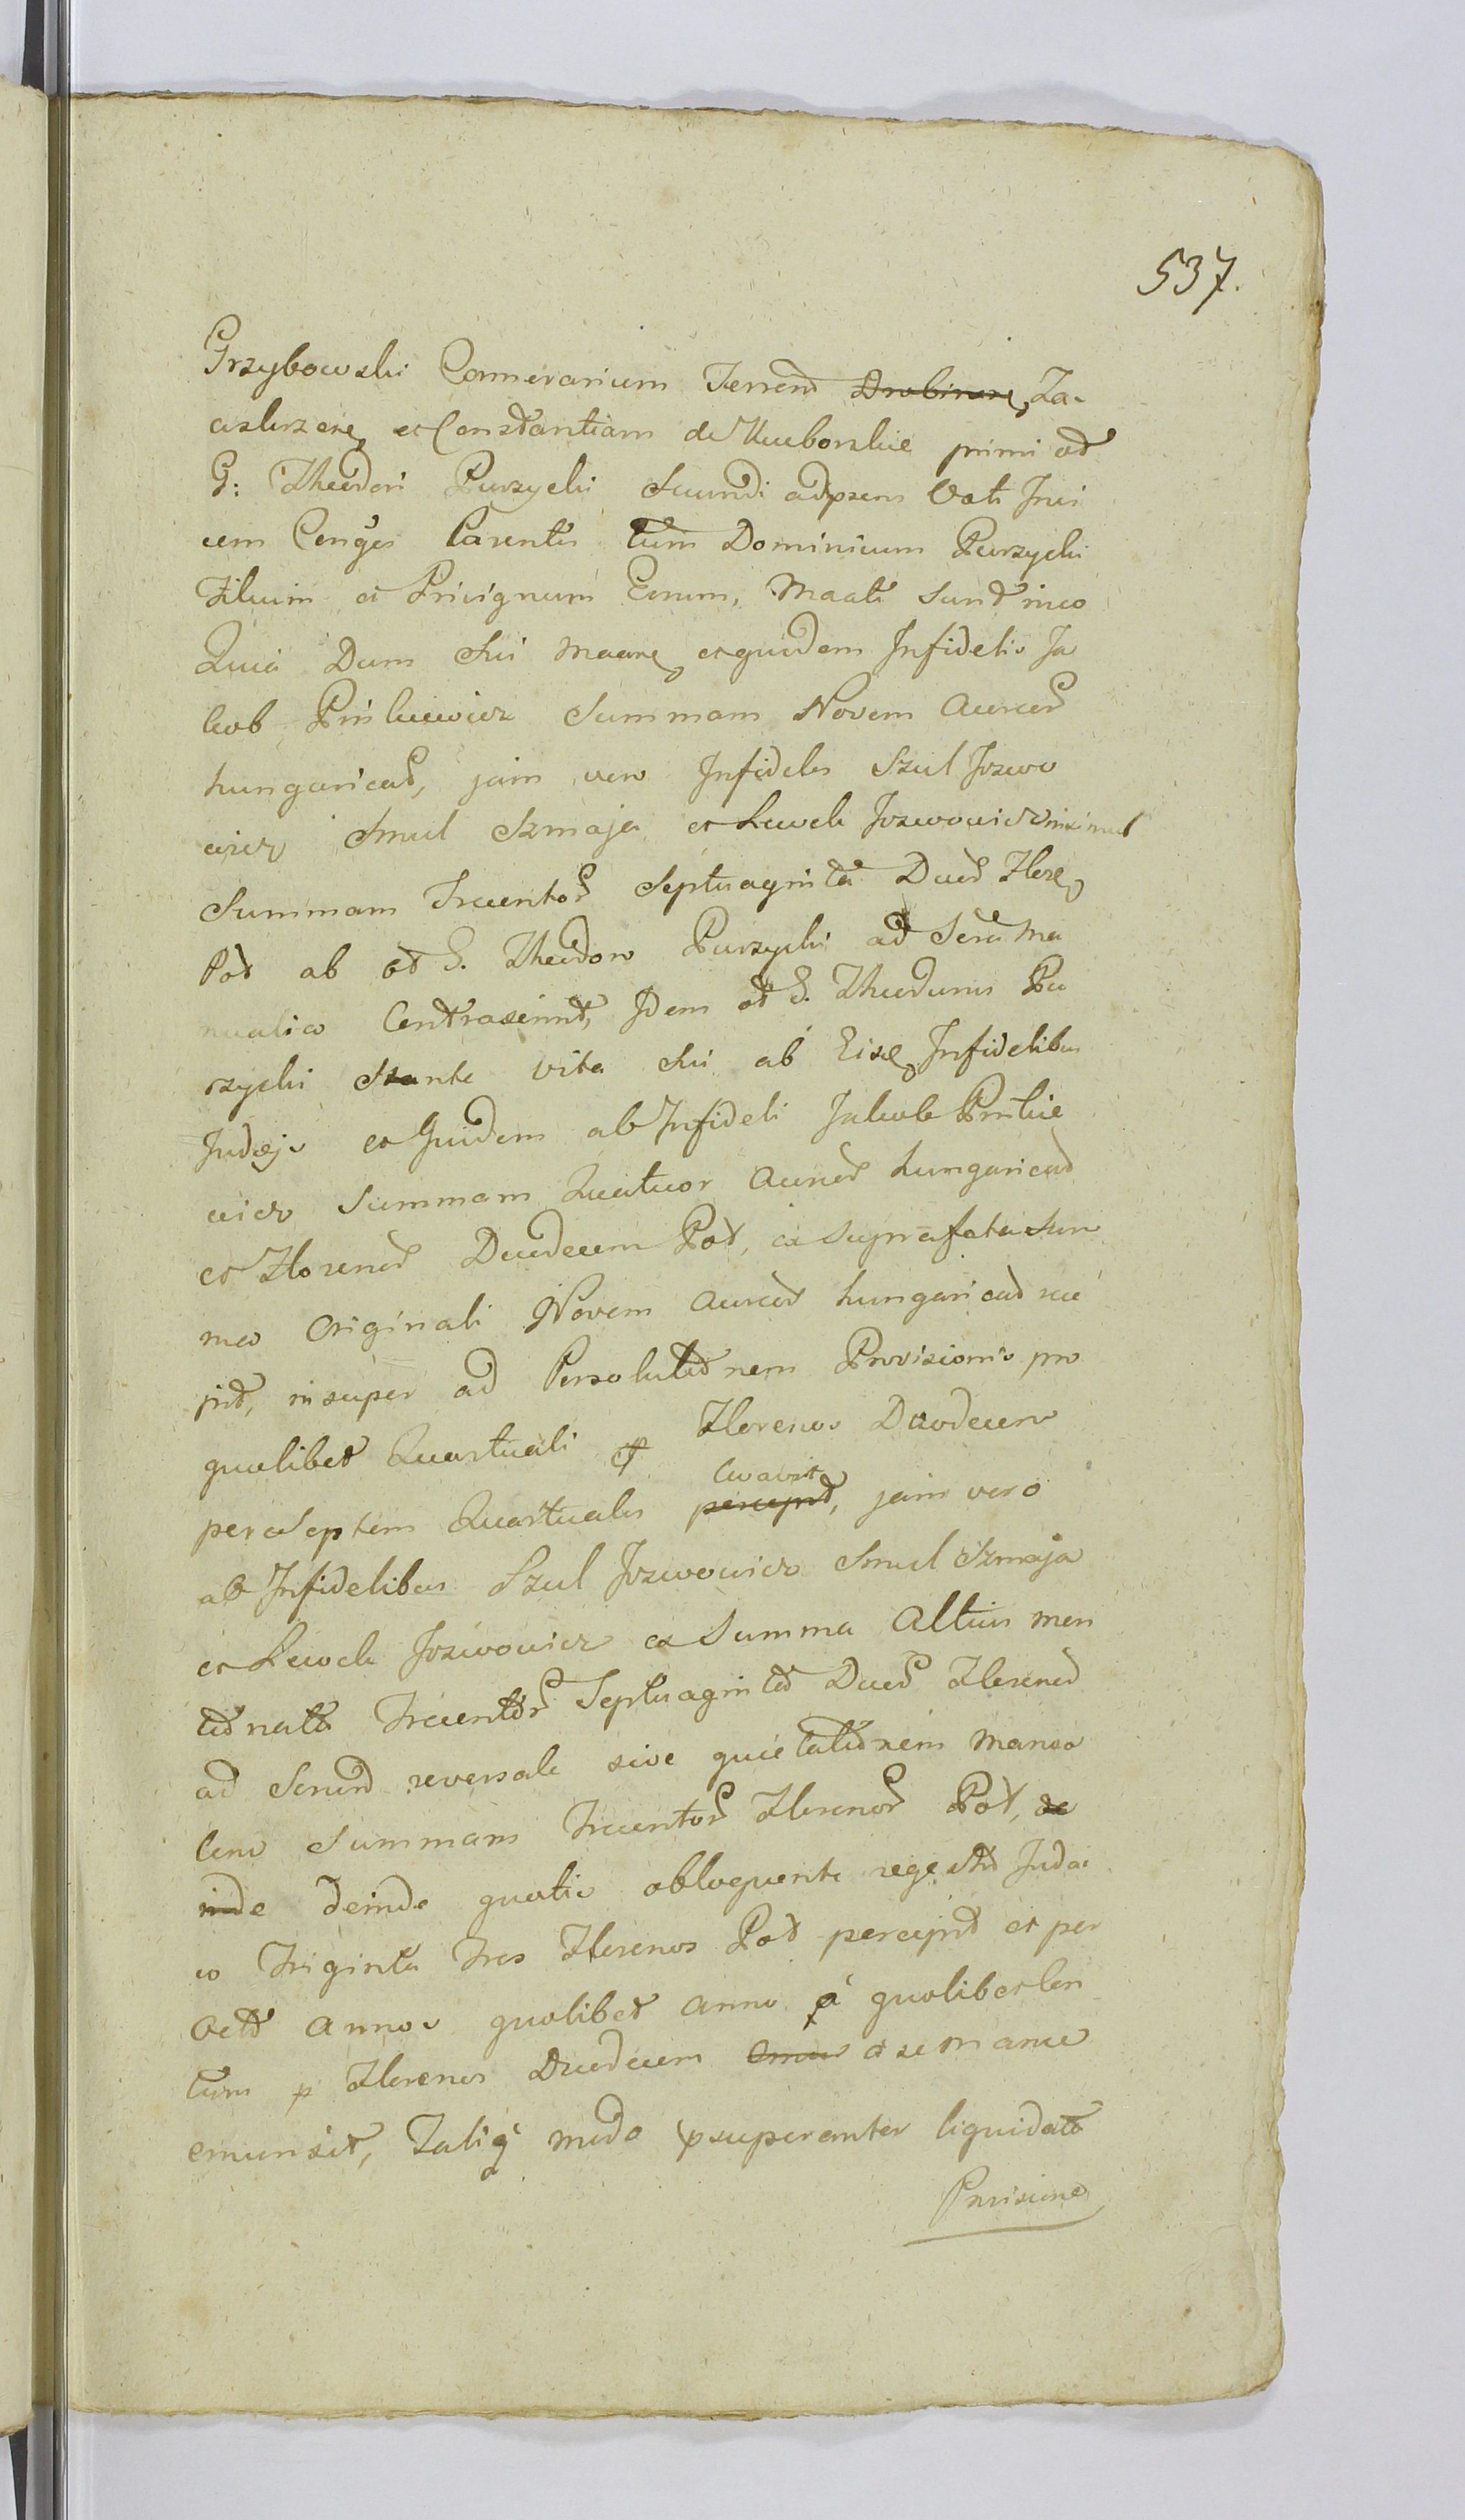 537.
Grzybowski Camerarium Terren Drobinen, Za-
wskrzen, et Constantiam de Kuborskie primi ot
G: Theodori Purzycki Secundi adpraesens Voti Invi
cem Conges Parentes tum Dominicum Purzycki
Filium et Privignum Eorum, Maati sunt in eo
Quia Dum Sui Maare, et quidem Infidelis Ja
kob Pinkiewicz Summam Novem Aureor
hungarical, jam vero Infideles Szul Jozwo
wicz Smul Szmaja et Lewek Jozwowicz insimul
Summam Trecentor Septuaginta Duor Flore,
Pol ab ot G. Theodoro Purzycki ad Scra Ma
nualia Contraxerint, Idem ot G. Theodorus Pu
rzycki Stante vita Sui ab Eisd, Infidelibus
Judaejs et Quidem ab Infideli Jakob Pinkie
wicz Summam Quatuor Aureor hungarical
et Florenor Duodecem Pol, ex Suprafata Sum
ma Originali Novem Aureor hungarical rece
pit, insuper ad Persolutionem Provisionis pro
quolibet Quartuali p Florenos Duodecem
per Septem Quartuales percepit, levavit jam vero
ab Infidelibus Szul Jozwowicz Smul Szmaja
et Lewek Jozwowicz ex Summa Altius men
tionata Trecentor Septuaginta Duor Florenor
ad Scrum reversale sive quietationem Manoa
lem Summam Trecentor Florenor Pol, de
inde deinde gratis obloquente regestro Juda-
eo Triginta Tres Florenos Pol percepit et per
Octo Annos quolibet Anno a quolibet Cen
tum p Florenos Duodecem a se Mance
emunxit, Taliq modo exsuperanter liquidata
Provisione